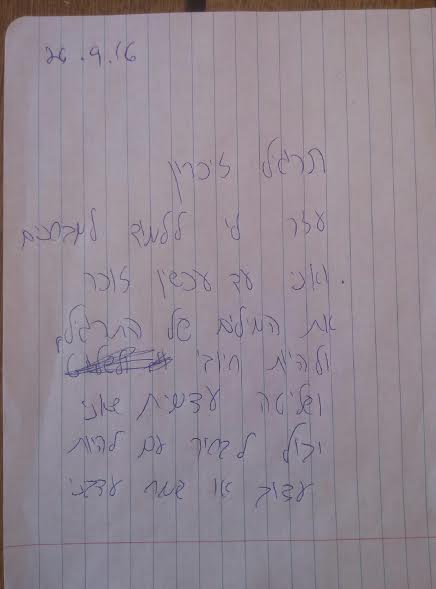 26.9.16
תרגיל זיכרון
עזר לי ללמוד למבחנים
ואני עד עכשיו זוכר.
את המילים של התרגיל,
ולהיות חיובי
ושליטה עצמית שאני
יכול לבחור עם להיות
עצוב או שמח